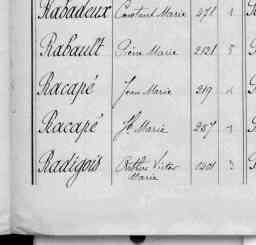 Rabadeux Constant Marie 471 1
Rabault Pierre Marie 2121 5
Racapé Jean Marie 219
Racapé Jh Marie 287 1
Radigois Victor 1201 3
Marie